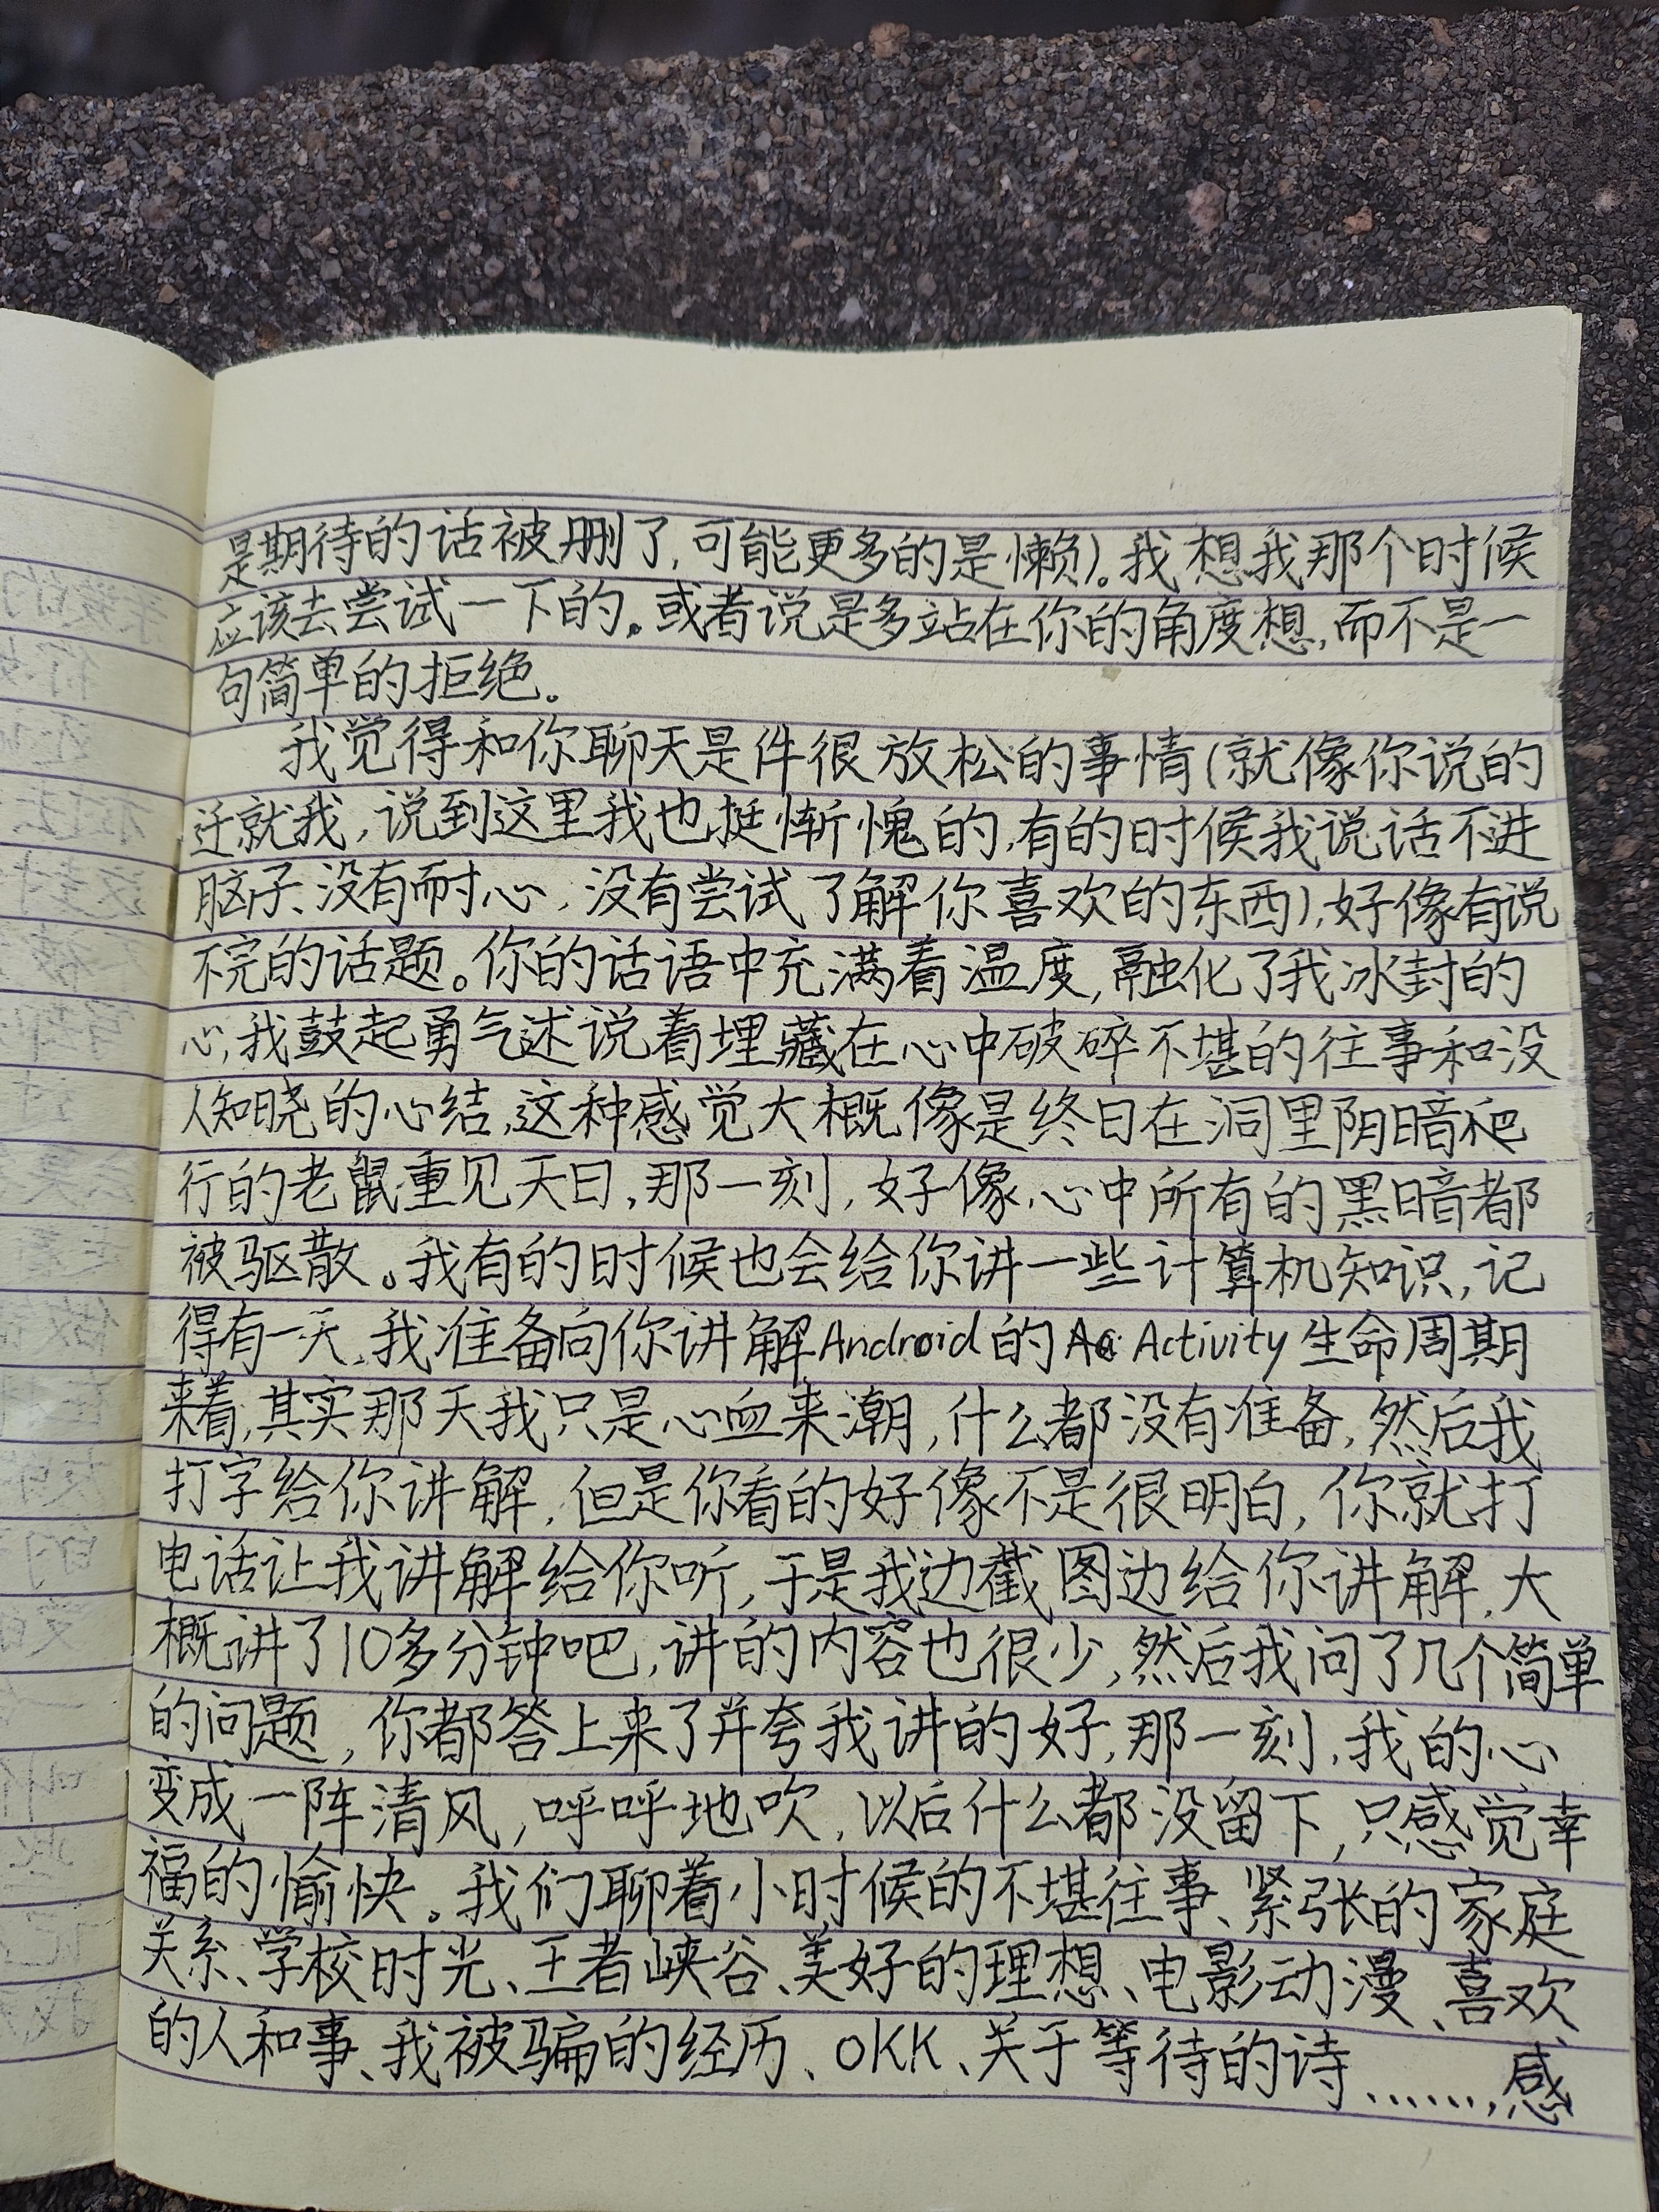 是期待的话被删了,可能更多的是懒)。我想我那个时候
应该去尝试一下的。或者说是多站在你的角度想,而不是一
句简单的拒绝。
我觉得和你聊天是件很放松的事情(就像你说的
迁就我,说到这里我也挺惭愧的,有的时候我说话不进
脑子、没有耐心,没有尝试了解你喜欢的东西),好像有说
不完的话题。你的话语中充满着温度,融化了我冰封的
心,我鼓起勇气述说着埋藏在心中破碎不堪的往事和没
人知晓的心结,这种感觉大概像是终日在洞里阴暗爬
行的老鼠重见天日,那一刻,好像心中所有的黑暗都
被驱散。我有的时候也会给你讲一些计算机知识,记
得有一天,我准备向你讲解Android的Ac Activity生命周期
来着,其实那天我只是心血来潮,什么都没有准备,然后我
打字给你讲解,但是你看的好像不是很明白,你就打
电话让我讲解给你听,于是我边截图边给你讲解,大
概讲了10多分钟吧,讲的内容也很少,然后我问了几个简单
的问题,你都答上来了并夸我讲的好,那一刻,我的心
变成一阵清风,呼呼地吹,以后什么都没留下,只感觉幸
福的愉快。我们聊着小时候的不堪往事、紧张的家庭
关系、学校时光、王者峡谷、美好的理想、电影动漫、喜欢
的人和事、我被骗的经历、OKK、关于等待的诗.......感